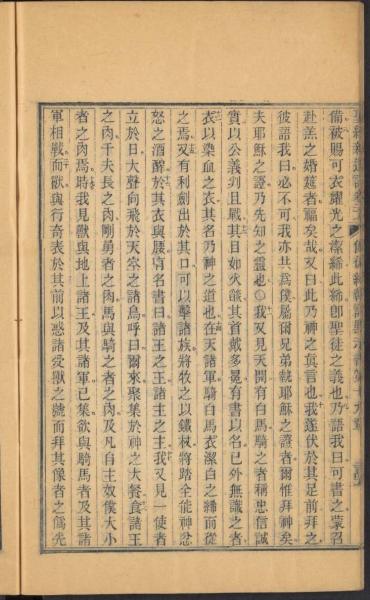 備被賜可衣耀光之潔絲此絲卽聖徒之義也乃語我曰可書之蒙召
赴羔之婚筵者福矣哉又曰此乃神之眞言也我遂伏於其足前拜之
彼語我曰必不可我亦共爲僕屬爾兄弟執耶穌之證者爾惟拜神矣
夫耶穌之證乃先知之靈也○我又見天開有白馬騎之者稱忠信誠
實以公義判且戰其目如火燄其首戴多冕有書以名已外無識之者
衣以染血之衣其名乃神之道也在天諸軍騎白馬衣潔白之絲而從
之焉又有利劍出於其口可以擊諸族將牧之以鐵杖將踏全能神忿
怒之酒醡於其衣與腰有名書曰諸王之王諸主之主我又見一使者
立於日大聲向飛於天穹之諸鳥呼曰爾來聚集於神之大餐食諸王
之肉千夫長之肉剛勇者之肉馬與騎之者之肉及凡自主奴僕大小
者之肉焉時我見獸與地上諸王及其諸軍已集欲與騎馬者及其諸
軍相戰而獸與行奇表於其前以惑諸受獸之號而拜其像者之僞先